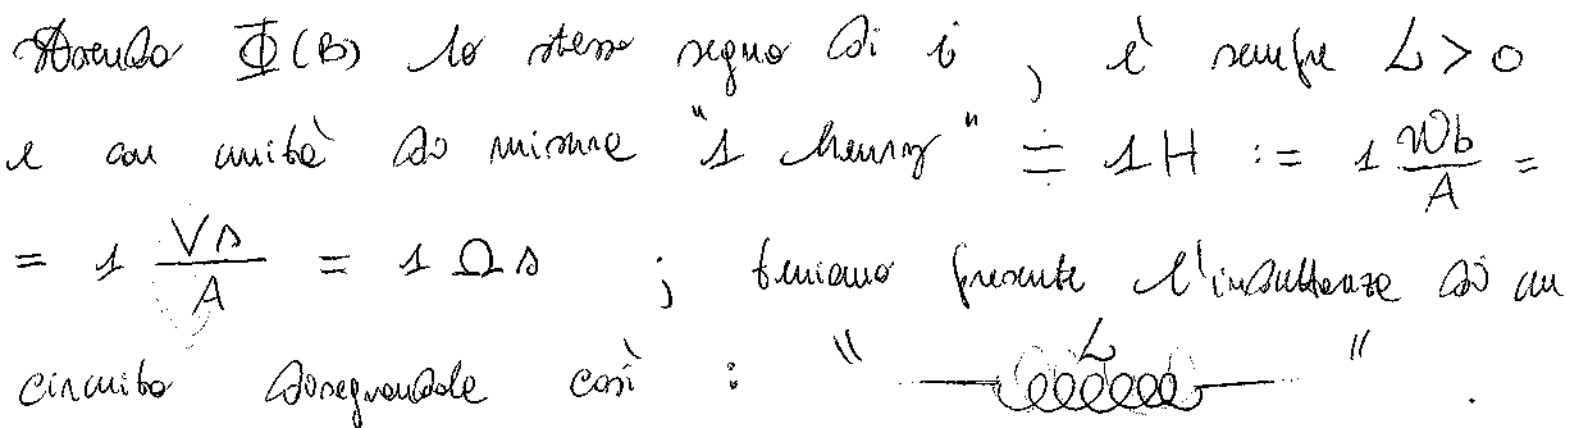 Avendo Φ(B) lo stesso segno di i, è sempre L > 0
e con unità di misura "1 henry" ≐ 1H := 1 Wb/A =
= 1 Vs/A = 1 Ωs ; teniamo presente l'induttanza di un
circuito disegnandole così : " L " .